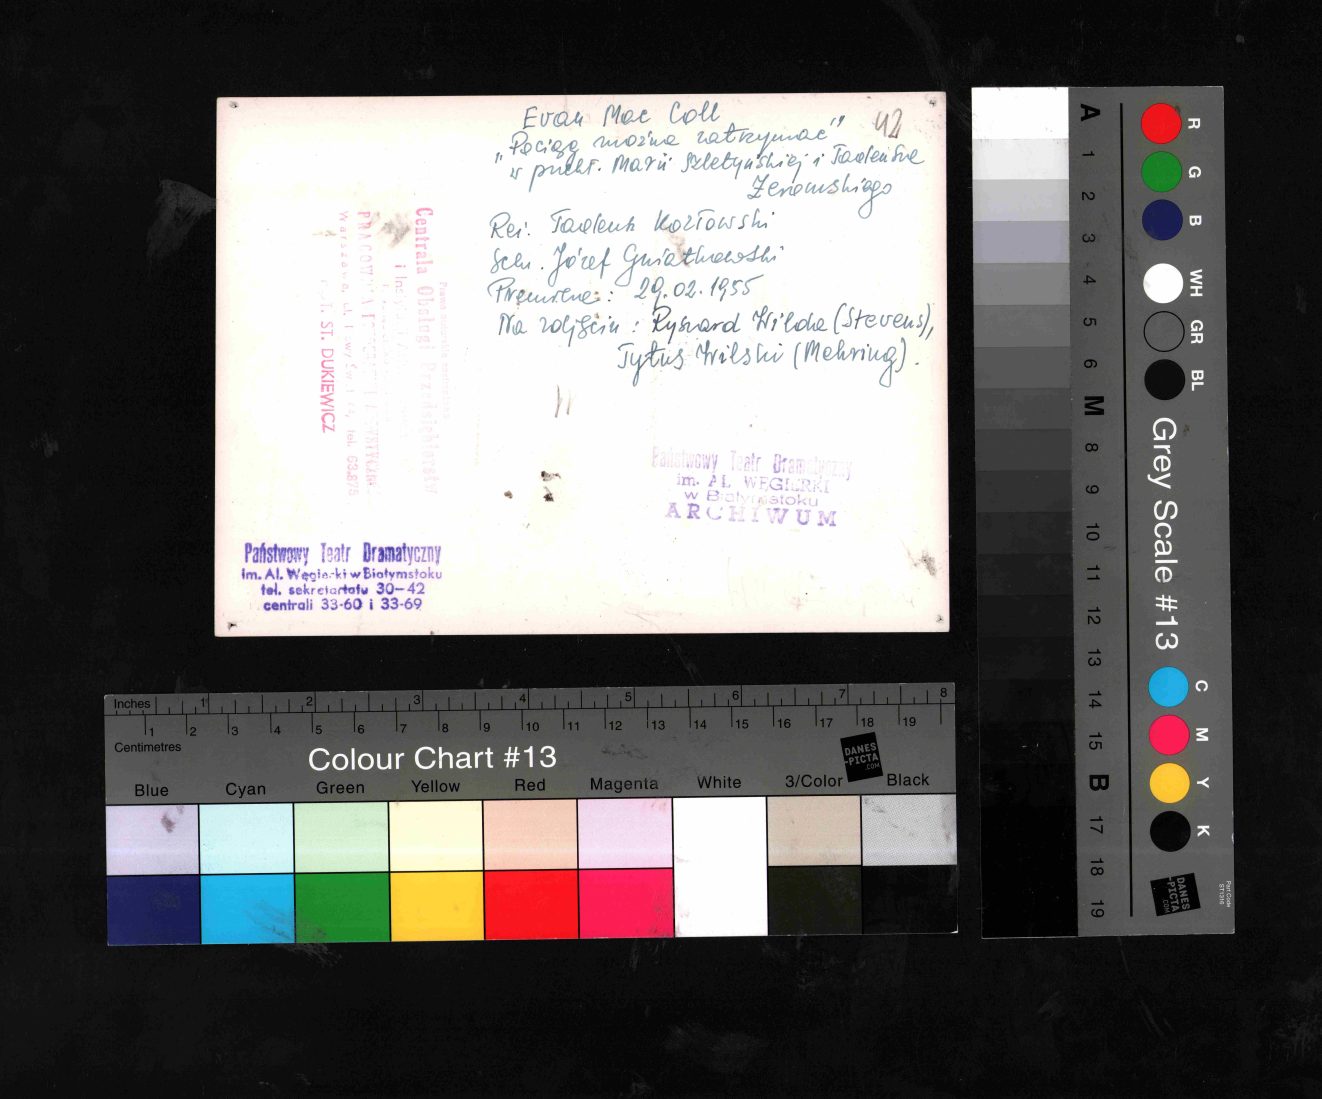 Evan Mac Coll
42
"Pociąg można zatrzymać"
w przekł. Marii Szletyńskiej i Tadeusza
Żeromskiego
Reż. Tadeusz Kozłowski
Scen. Józef Gniatkowski
Premiera: 29.02.1955
Na zdjęciu: Ryszard Wilda (Stevens),
Tytus Wilski (Mehring).
Centrala Obsługi Przedsiębiorstw
ST. DUKIEWICZ
Państwowy Teatr Dramatyczny
im. AL. WĘGIERKI
w Białymstoku
ARCHIWUM
Państwowy Teatr Dramatyczny
im. Al. Węgierki w Białymstoku
tel. sekretariatu 30-42
centrali 33-60 i 33-69
Inches 1 2 3 4 5 6 7 8
1 2 3 4 5 6 7 8 9 10 11 12 13 14 15 16 17 18 19
Centimetres
Colour Chart #13
DANES
-PICTA
.COM
Blue Cyan Green Yellow Red Magenta White 3/Color Black
A 1 2 3 4 5 6 M 8 9 10 11 12 13 14 15 B 17 18 19
R G B WH GR BL
Grey Scale #13
C M Y K
DANES
-PICTA
.COM
Part Code
ST1316